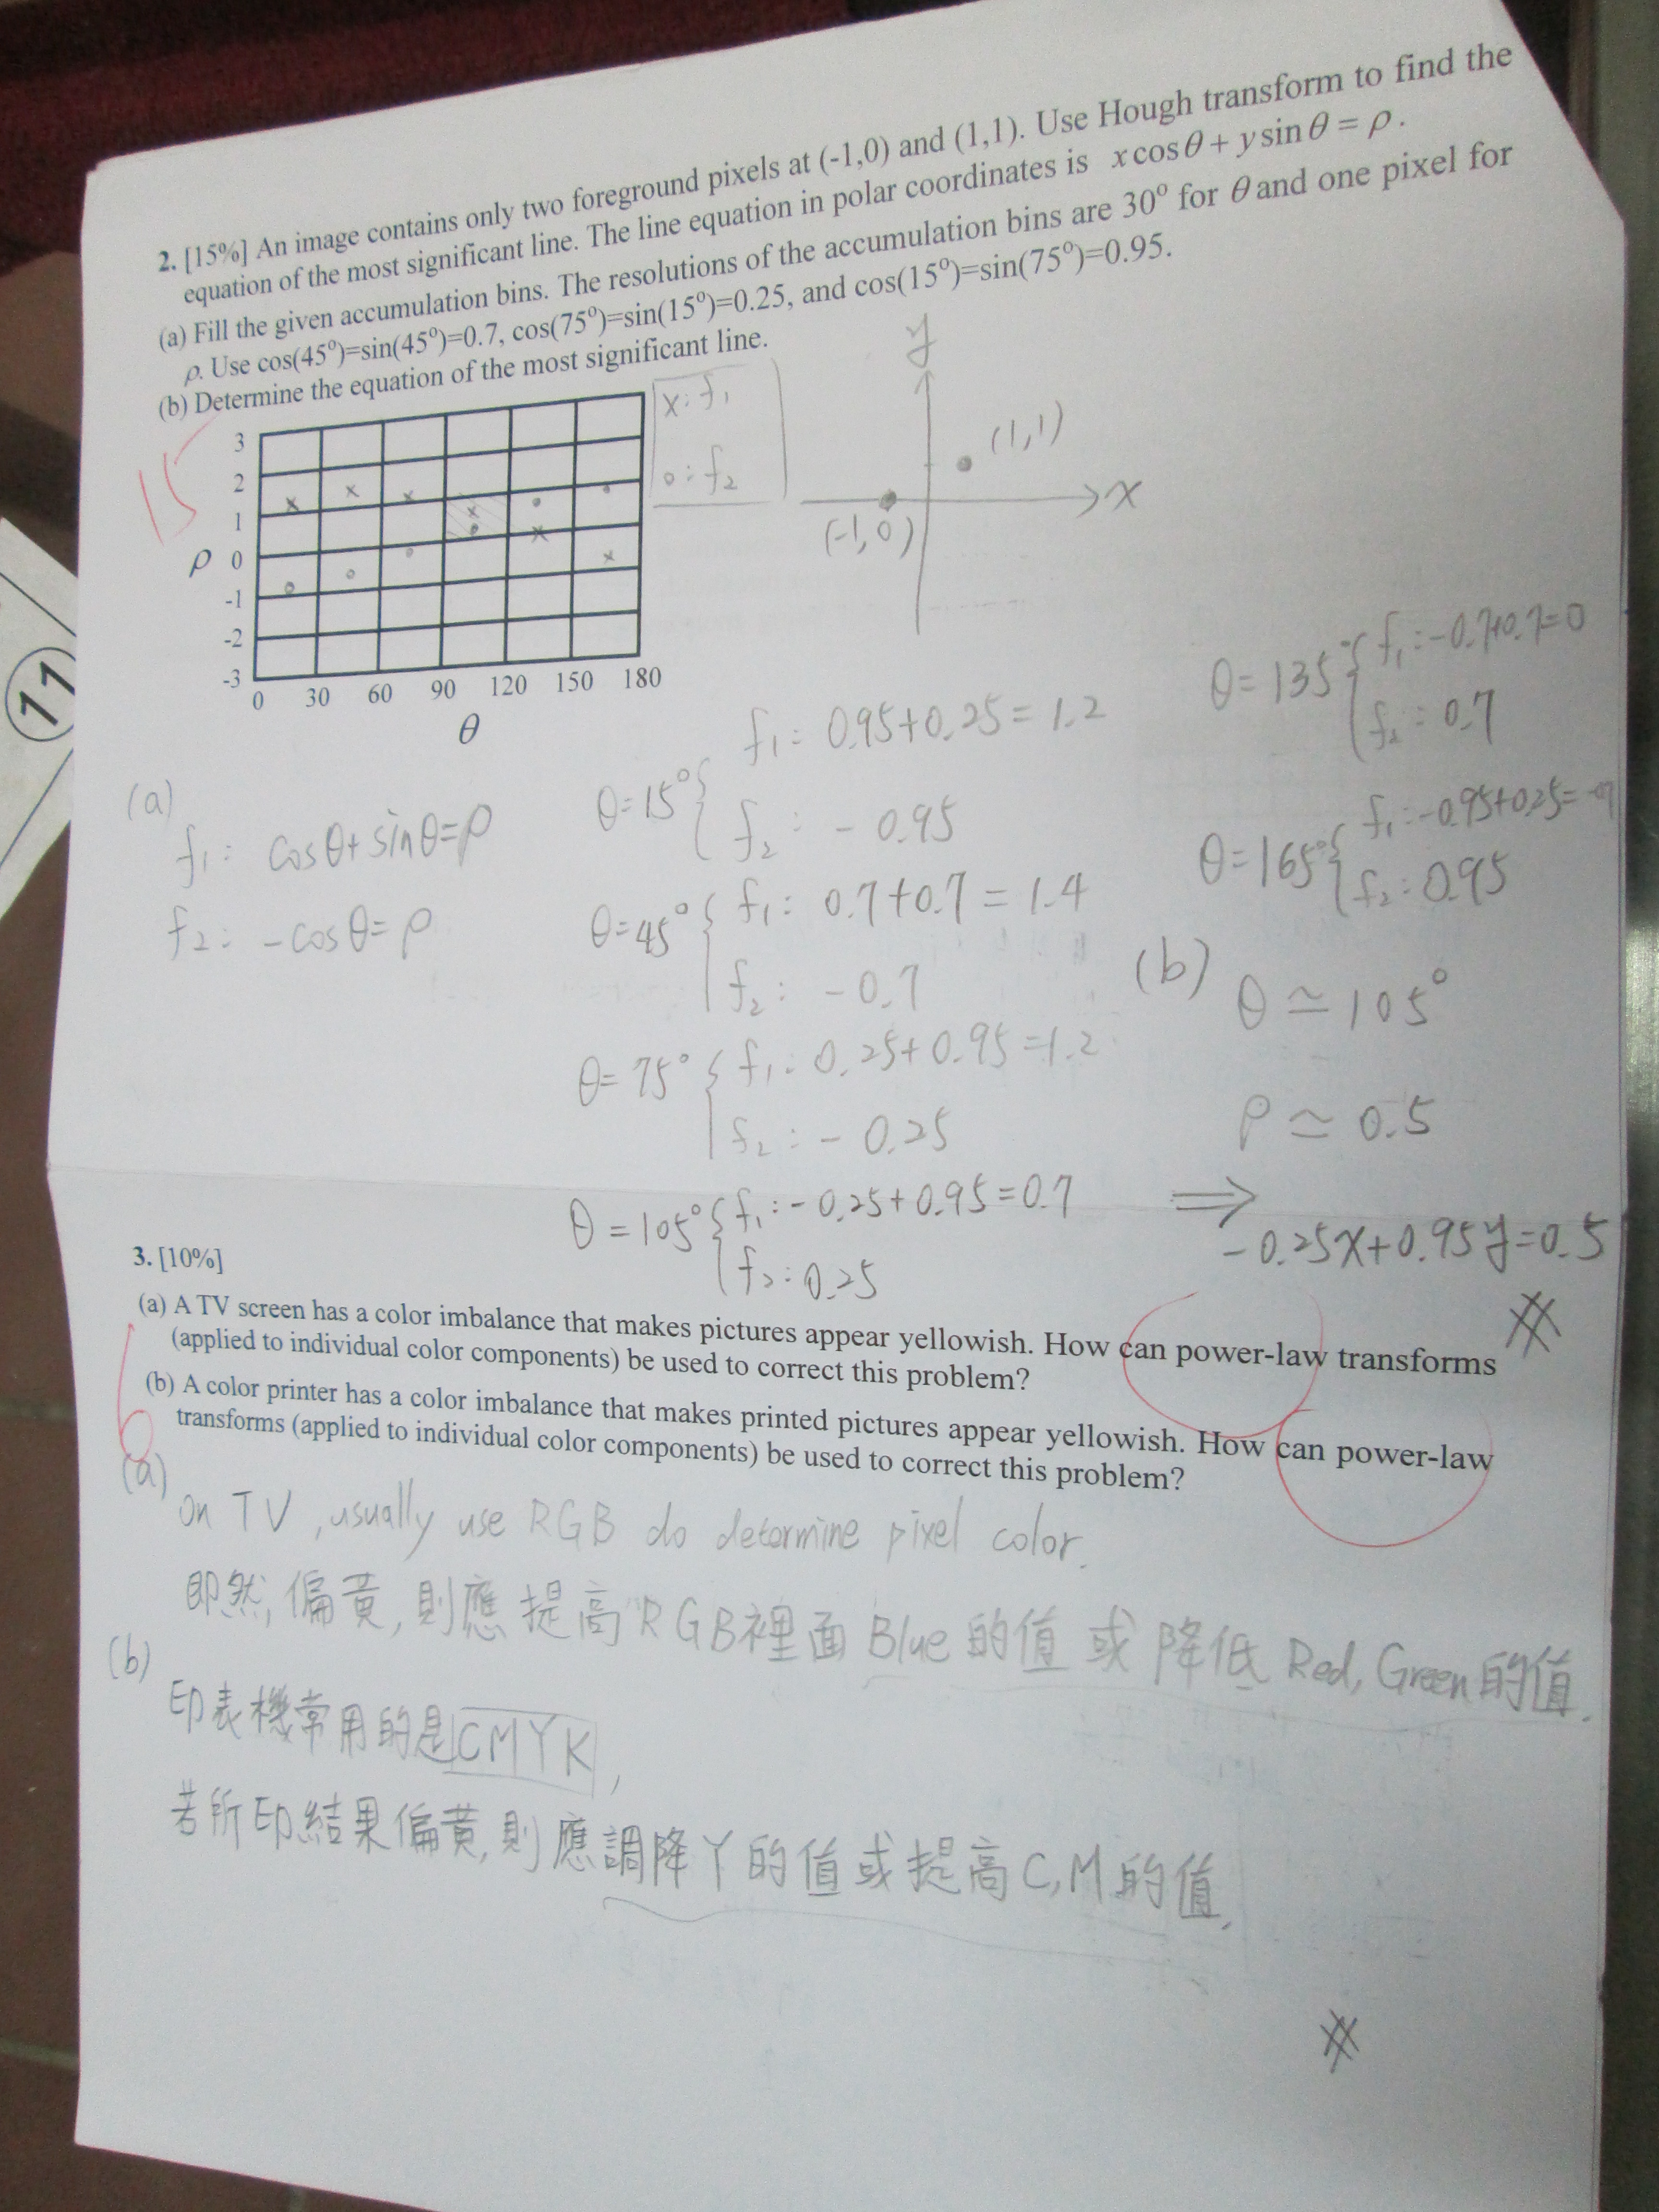 2. [15%] An image contains only two foreground pixels at (-1,0) and (1,1). Use Hough transform to find the
equation of the most significant line. The line equation in polar coordinates is x cos θ + y sin θ = ρ.
(a) Fill the given accumulation bins. The resolutions of the accumulation bins are 30° for θ and one pixel for
ρ. Use cos(45°)=sin(45°)=0.7, cos(75°)=sin(15°)=0.25, and cos(15°)=sin(75°)=0.95.
(b) Determine the equation of the most significant line.
15
3
2
1
ρ 0
-1
-2
-3
0 30 60 90 120 150 180
θ
x: f₁
o: f₂
y
x
(1,1)
(-1,0)
11
(a)
f₁: cosθ+sinθ=ρ
f₂: -cosθ=ρ
θ=15° { f₁: 0.95+0.25=1.2
f₂: -0.95
θ=45° { f₁: 0.7+0.7=1.4
f₂: -0.7
θ=75° { f₁: 0.25+0.95=1.2
f₂: -0.25
θ=105° { f₁: -0.25+0.95=0.7
f₂: 0.25
θ=135° { f₁: -0.7+0.7=0
f₂: 0.7
θ=165° { f₁: -0.95+0.25=
f₂: 0.95
(b) θ ≃ 105°
ρ ≃ 0.5
⇒ -0.25x+0.95y=0.5
3. [10%]
(a) A TV screen has a color imbalance that makes pictures appear yellowish. How can power-law transforms
(applied to individual color components) be used to correct this problem?
(b) A color printer has a color imbalance that makes printed pictures appear yellowish. How can power-law
transforms (applied to individual color components) be used to correct this problem?
6
(a)
On TV, usually use RGB do determine pixel color.
即然, 偏黃, 則應提高RGB裡面Blue的值 或 降低 Red, Green的值.
(b)
印表機常用的是CMYK,
若所印結果偏黃, 則應調降Y的值或提高C,M的值.